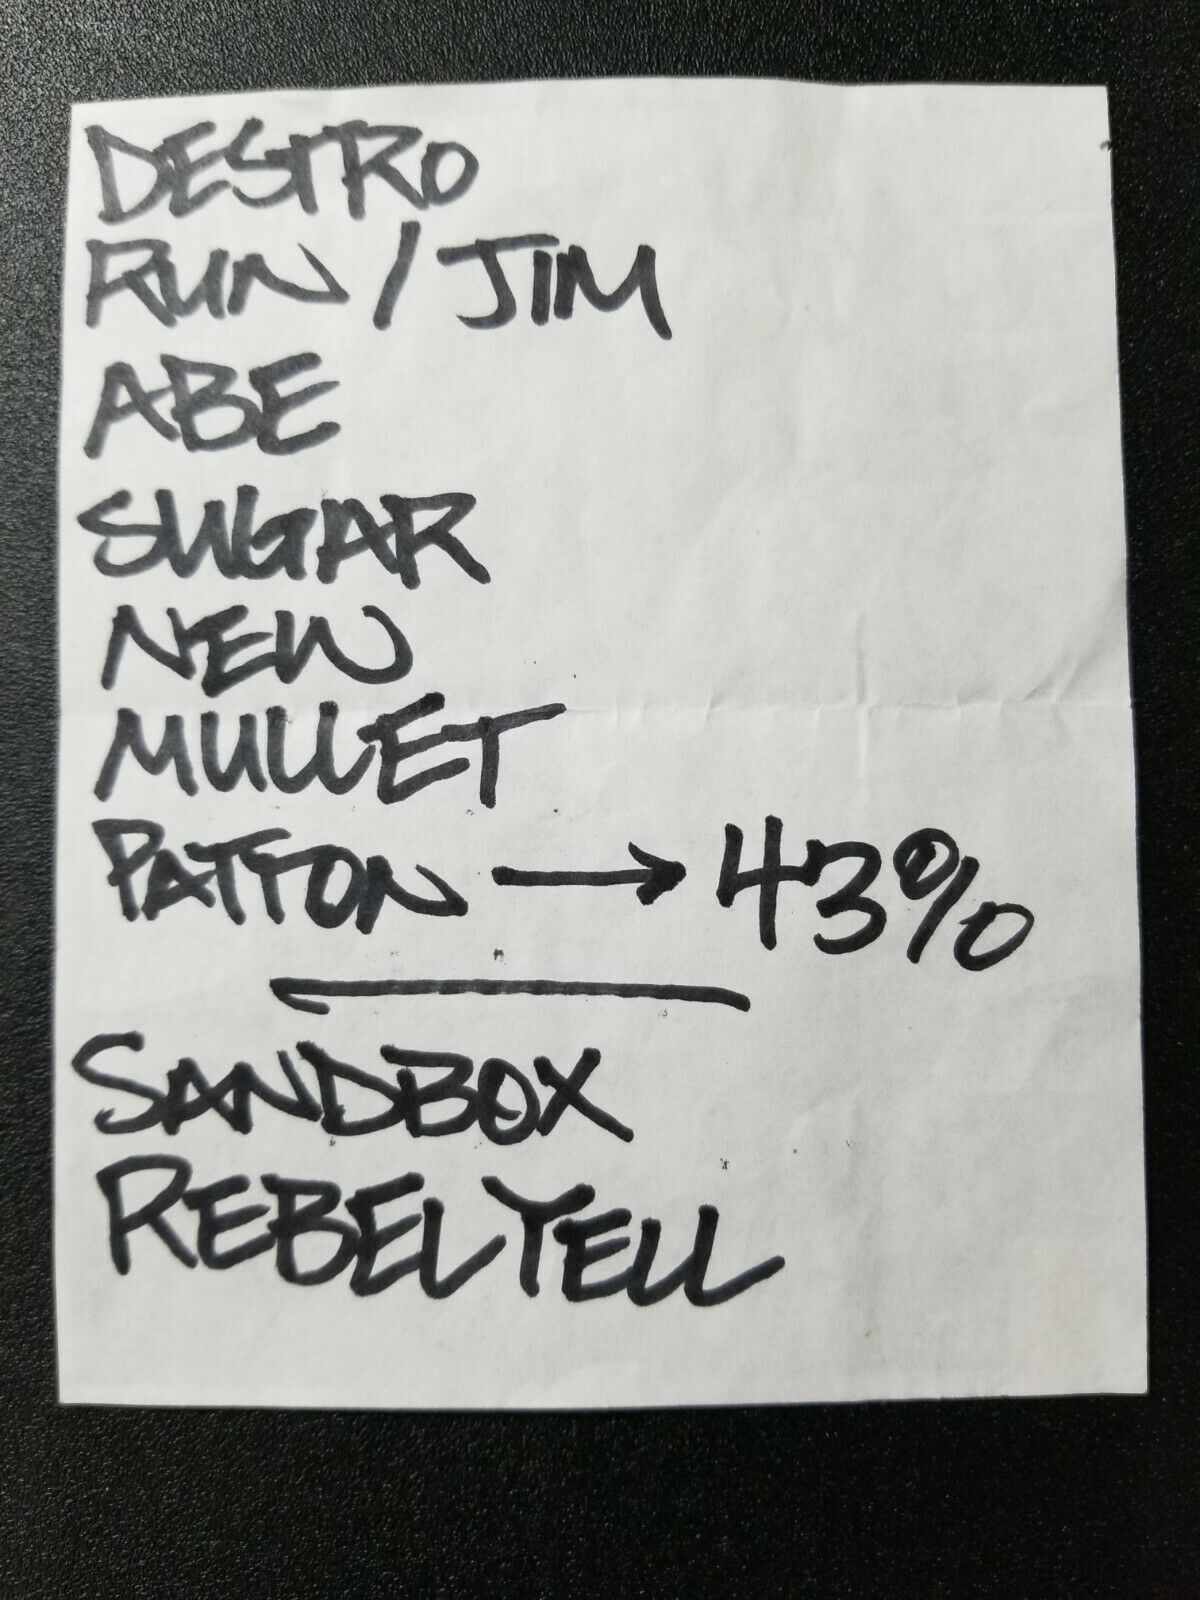 DESTRO
RUN / JIM
ABE
SUGAR
NEW
MULLET
PATTON → 43%
SANDBOX
REBEL YELL